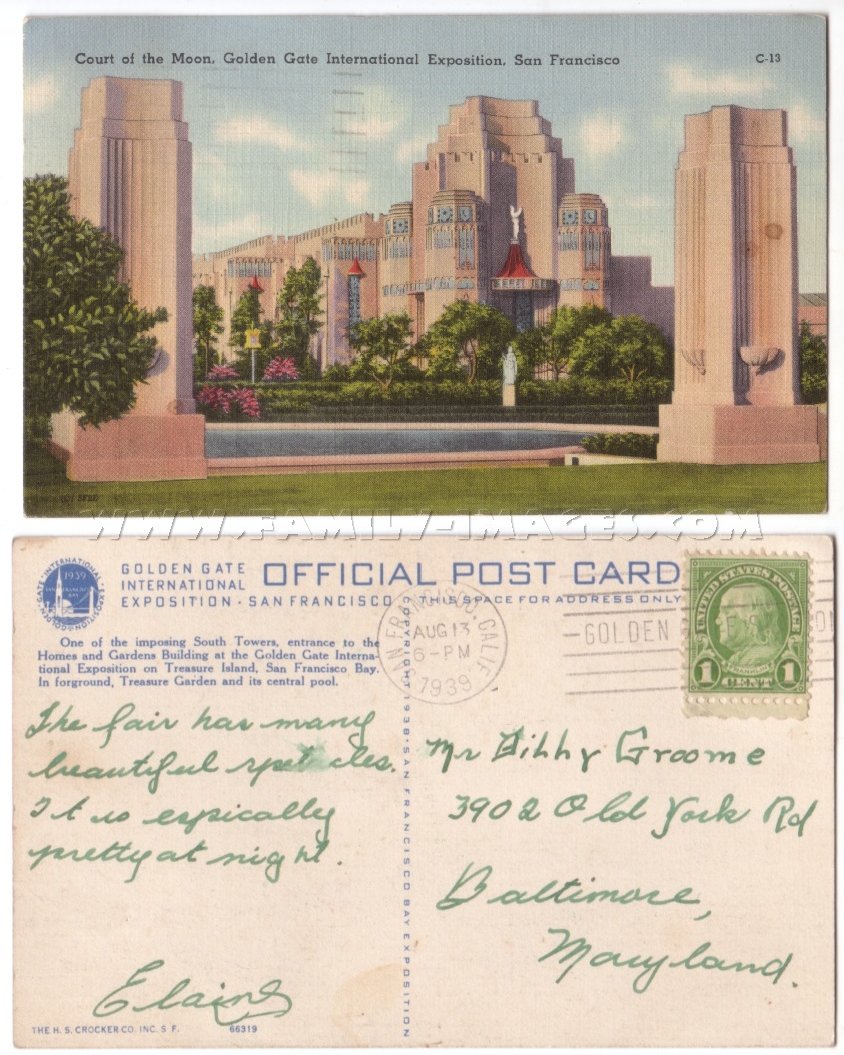 Court of the Moon, Golden Gate International Exposition, San Francisco
C-13
WWW.FAMILY-IMAGES.COM
GOLDEN GATE INTERNATIONAL EXPOSITION
1939
SAN FRANCISCO BAY
GOLDEN GATE
INTERNATIONAL
EXPOSITION · SAN FRANCISCO
OFFICIAL POST CARD
THIS SPACE FOR ADDRESS ONLY
One of the imposing South Towers, entrance to the
Homes and Gardens Building at the Golden Gate Interna-
tional Exposition on Treasure Island, San Francisco Bay.
In forground, Treasure Garden and its central pool.
COPYRIGHT 1938 · SAN FRANCISCO BAY EXPOSITION
SAN FRANCISCO, CALIF.
AUG 13
6-PM
1939
GOLDEN
UNITED STATES POSTAGE
FRANKLIN
1 CENT 1
The fair has many
beautiful spetacles.
It is espically
pretty at night.
Elaine
Mr Billy Groome
3902 Old York Rd
Baltimore,
Maryland.
THE H. S. CROCKER CO. INC. S. F.
66319